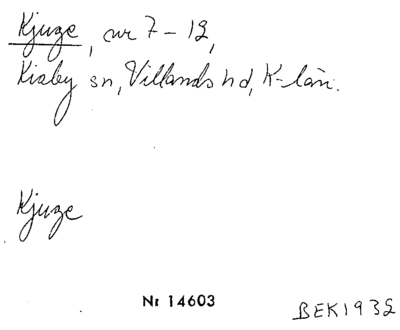 Kjuge, nr 7-12,
Kiaby sn, Villands hd, K-län.
Kjuge
Nr 14603
BEK 1932